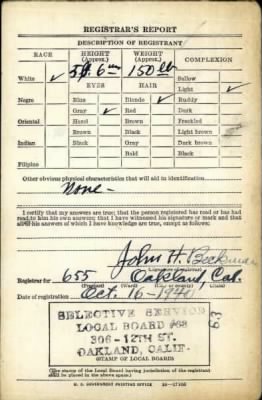 REGISTRAR'S REPORT
DESCRIPTION OF REGISTRANT
RACE
HEIGHT
(Approx.)
WEIGHT
(Approx.)
COMPLEXION
White ✓
5 ft. 6 in
150 lb
Sallow
EYES
HAIR
Light ✓
Negro
Blue
Blonde ✓
Ruddy
Gray ✓
Red
Dark
Oriental
Hazel
Brown
Freckled
Brown
Black
Light brown
Indian
Black
Gray
Dark brown
Bald
Black
Filipino
Other obvious physical characteristics that will aid in identification
None-
I certify that my answers are true; that the person registered has read or has had
read to him his own answers; that I have witnessed his signature or mark and that
all of his answers of which I have knowledge are true, except as follows:
John H. Beckman
Registrar for 655 Oakland, Cal.
(Precinct) (Ward) (City or county) (State)
Date of registration Oct. 16-1940
SELECTIVE SERVICE
LOCAL BOARD #63
306-12TH ST.
OAKLAND, CALIF.
63
(STAMP OF LOCAL BOARD)
(The stamp of the Local Board having jurisdiction of the registrant
shall be placed in the above space.)
U. S. GOVERNMENT PRINTING OFFICE 16-17105